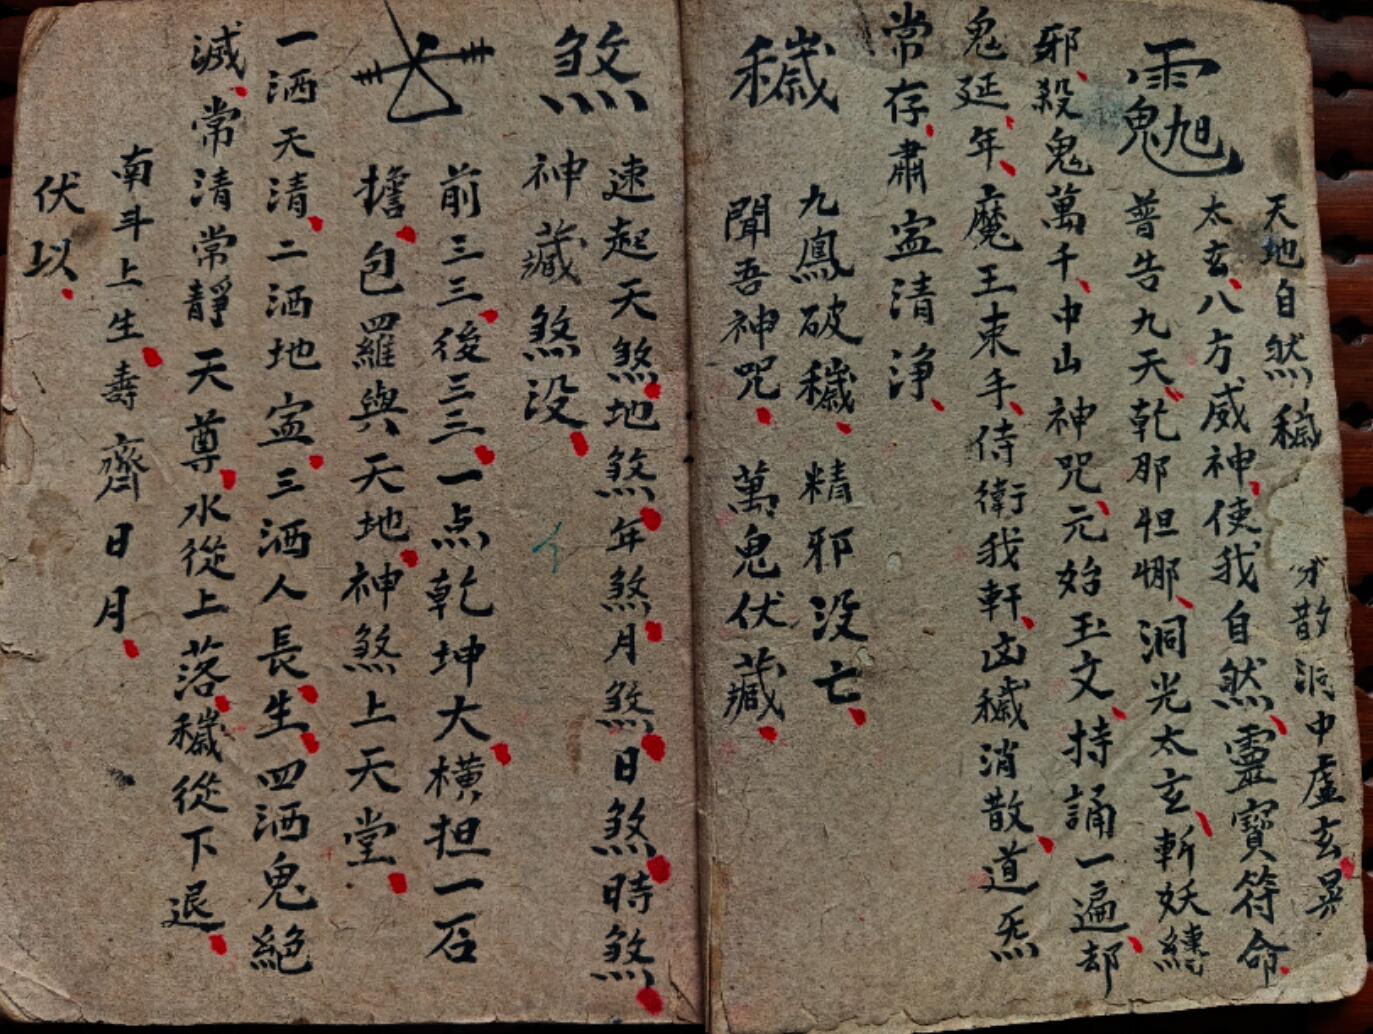 天地自然穢 分散洞中虛玄晃
太玄八方威神使我自然靈寶符命
普告九天乾那怛娜洞光太玄斬妖縛
邪殺鬼萬千中山神咒元始玉文持誦一遍却
鬼延年魔王束手侍衛我軒凶穢消散道炁
常存肅㝎清淨
穢
九鳳破穢精邪没亡
聞吾神咒萬鬼伏藏
煞
速起天煞地煞年煞月煞日煞時煞
神藏煞没
前三三後三三一点乾坤大橫担一石
擔包羅與天地神煞上天堂
一洒天清二洒地㝎三洒人長生四洒鬼絕
滅常清常靜天尊水從上落穢從下退
南斗上生壽齊日月
伏以